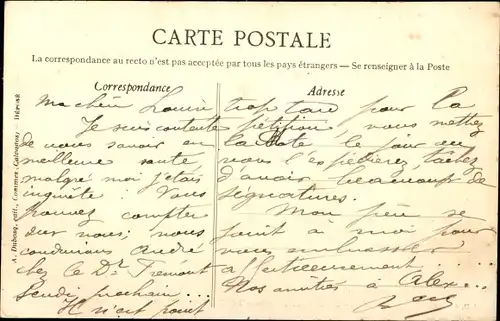 CARTE POSTALE
La correspondance au recto n'est pas acceptée par tous les pays étrangers — Se renseigner à la Poste
Correspondance
Ma chère
Je suis contente
de vous savoir en
meilleure santé
malgré moi j'étais
inquiète. Vous
pouvez compter
sur nous; nous
conduirons André
chez le Dr Frémont
Jeudi prochain...
Il n'est point
Adresse
trop tard pour la
pétition, vous mettez
la date le jour où
vous l'expédierez, tachez
d'avoir beaucoup de
signatures.
Mon père se
joint à moi pour
vous embrasser
affectueusement.....
Nos amitiés à Alex...
A. Dubosq, édit., Commer. Calvados, DÉPOSÉ